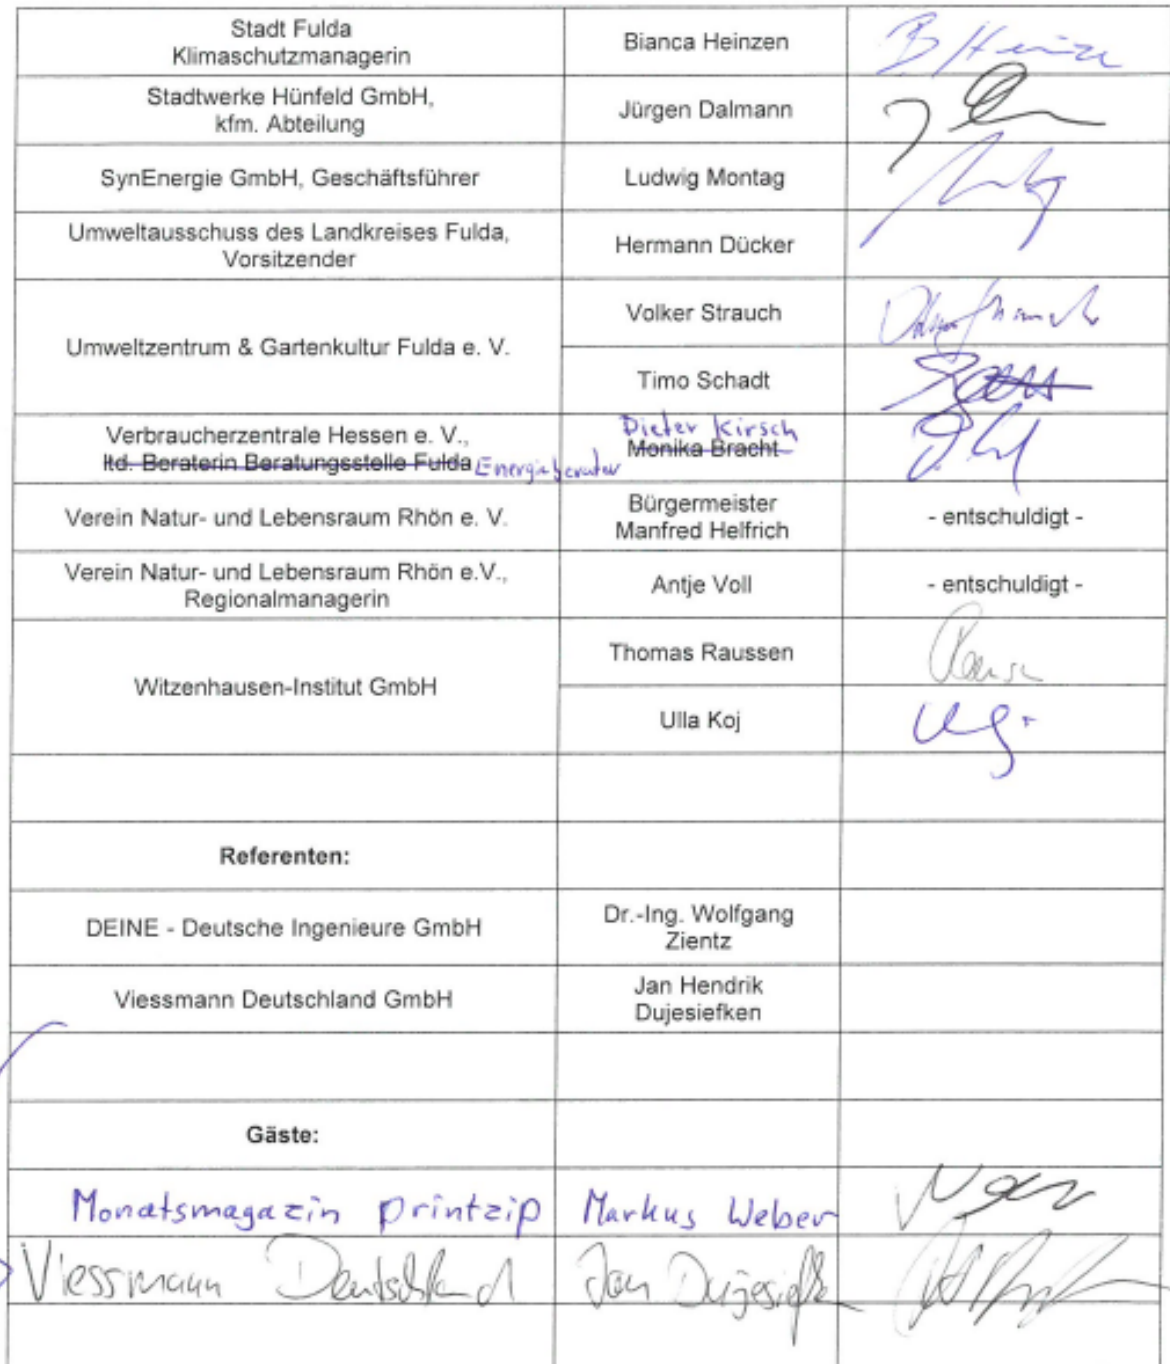 Stadt Fulda
Klimaschutzmanagerin
Bianca Heinzen
Stadtwerke Hünfeld GmbH,
kfm. Abteilung
Jürgen Dalmann
SynEnergie GmbH, Geschäftsführer
Ludwig Montag
Umweltausschuss des Landkreises Fulda,
Vorsitzender
Hermann Dücker
Umweltzentrum & Gartenkultur Fulda e. V.
Volker Strauch
Timo Schadt
Verbraucherzentrale Hessen e. V.,
ltd. Beraterin Beratungsstelle Fulda Energieberater
Dieter Kirsch
Monika Bracht
Verein Natur- und Lebensraum Rhön e. V.
Bürgermeister
Manfred Helfrich
- entschuldigt -
Verein Natur- und Lebensraum Rhön e.V.,
Regionalmanagerin
Antje Voll
- entschuldigt -
Witzenhausen-Institut GmbH
Thomas Raussen
Ulla Koj
Referenten:
DEINE - Deutsche Ingenieure GmbH
Dr.-Ing. Wolfgang
Zientz
Viessmann Deutschland GmbH
Jan Hendrik
Dujesiefken
Gäste:
Monatsmagazin printzip Markus Weber
Viessmann Deutschland Jan Dujesiefken